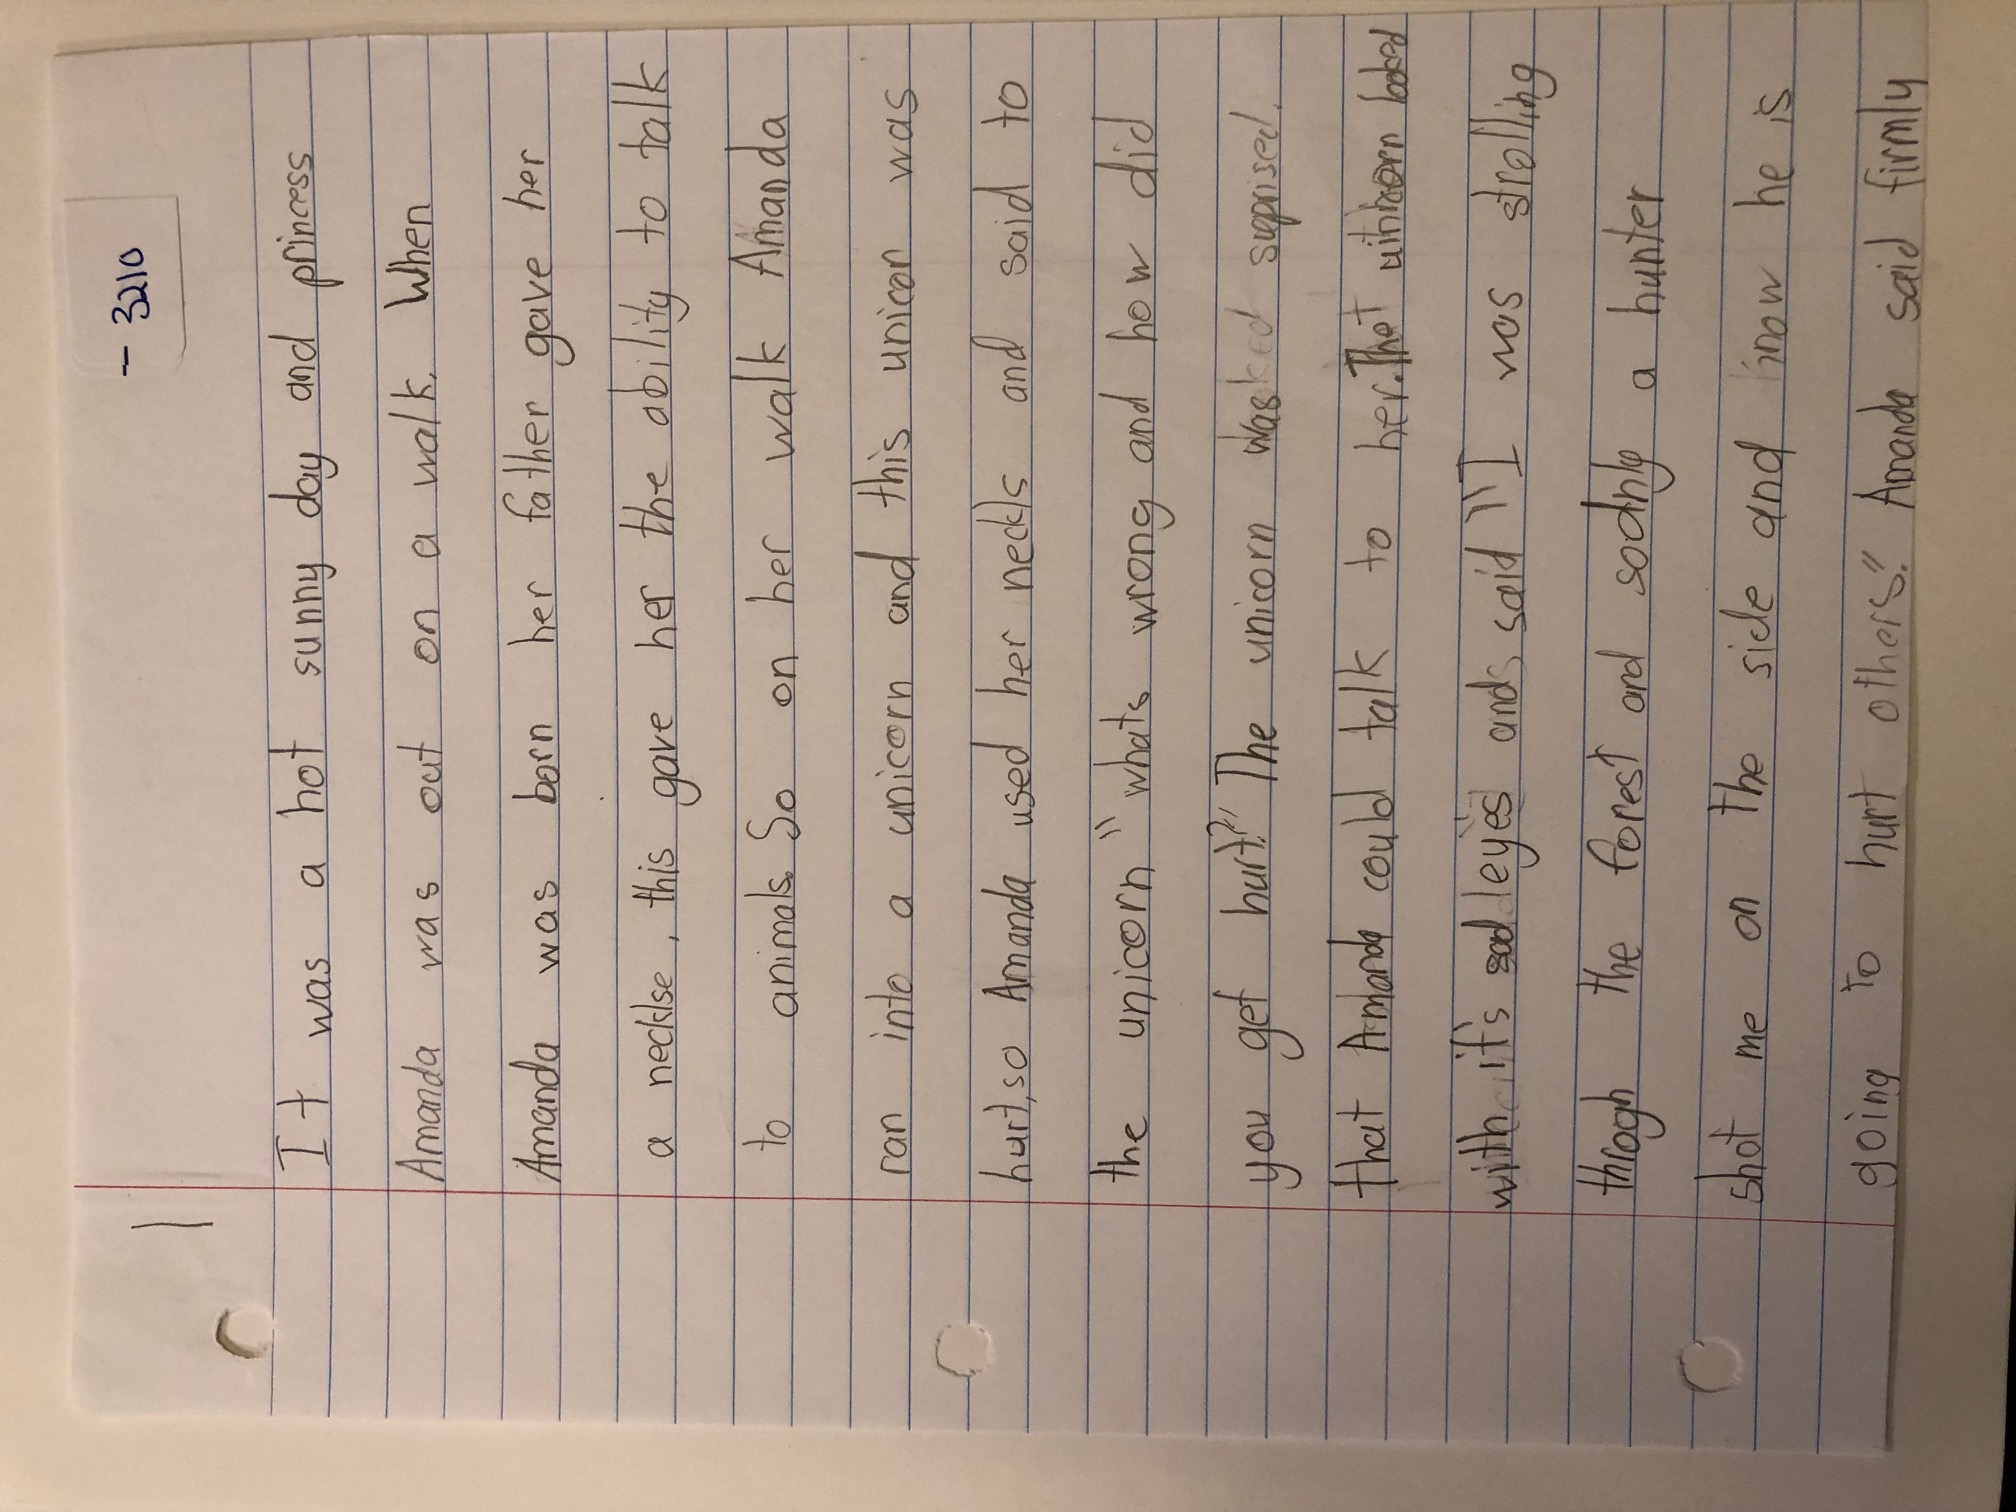 1
- 3210
It was a hot sunny day and princess
Amanda was out on a walk. When
Amanda was born her father gave her
a necklse, this gave her the ability to talk
to animals. So on her walk Amanda
ran into a unicorn and this unicon was
hurt, so Amanda used her neckls and said to
the unicorn "whats wrong and how did
you get hurt?" The unicorn was suprised.
that Amanda could talk to her. That unicorn looked
with it's sad eyes and said "I was strolling
throgh the forest and sodnly a hunter
shot me on the side and now he is
going to hurt others." Amanda said firmly